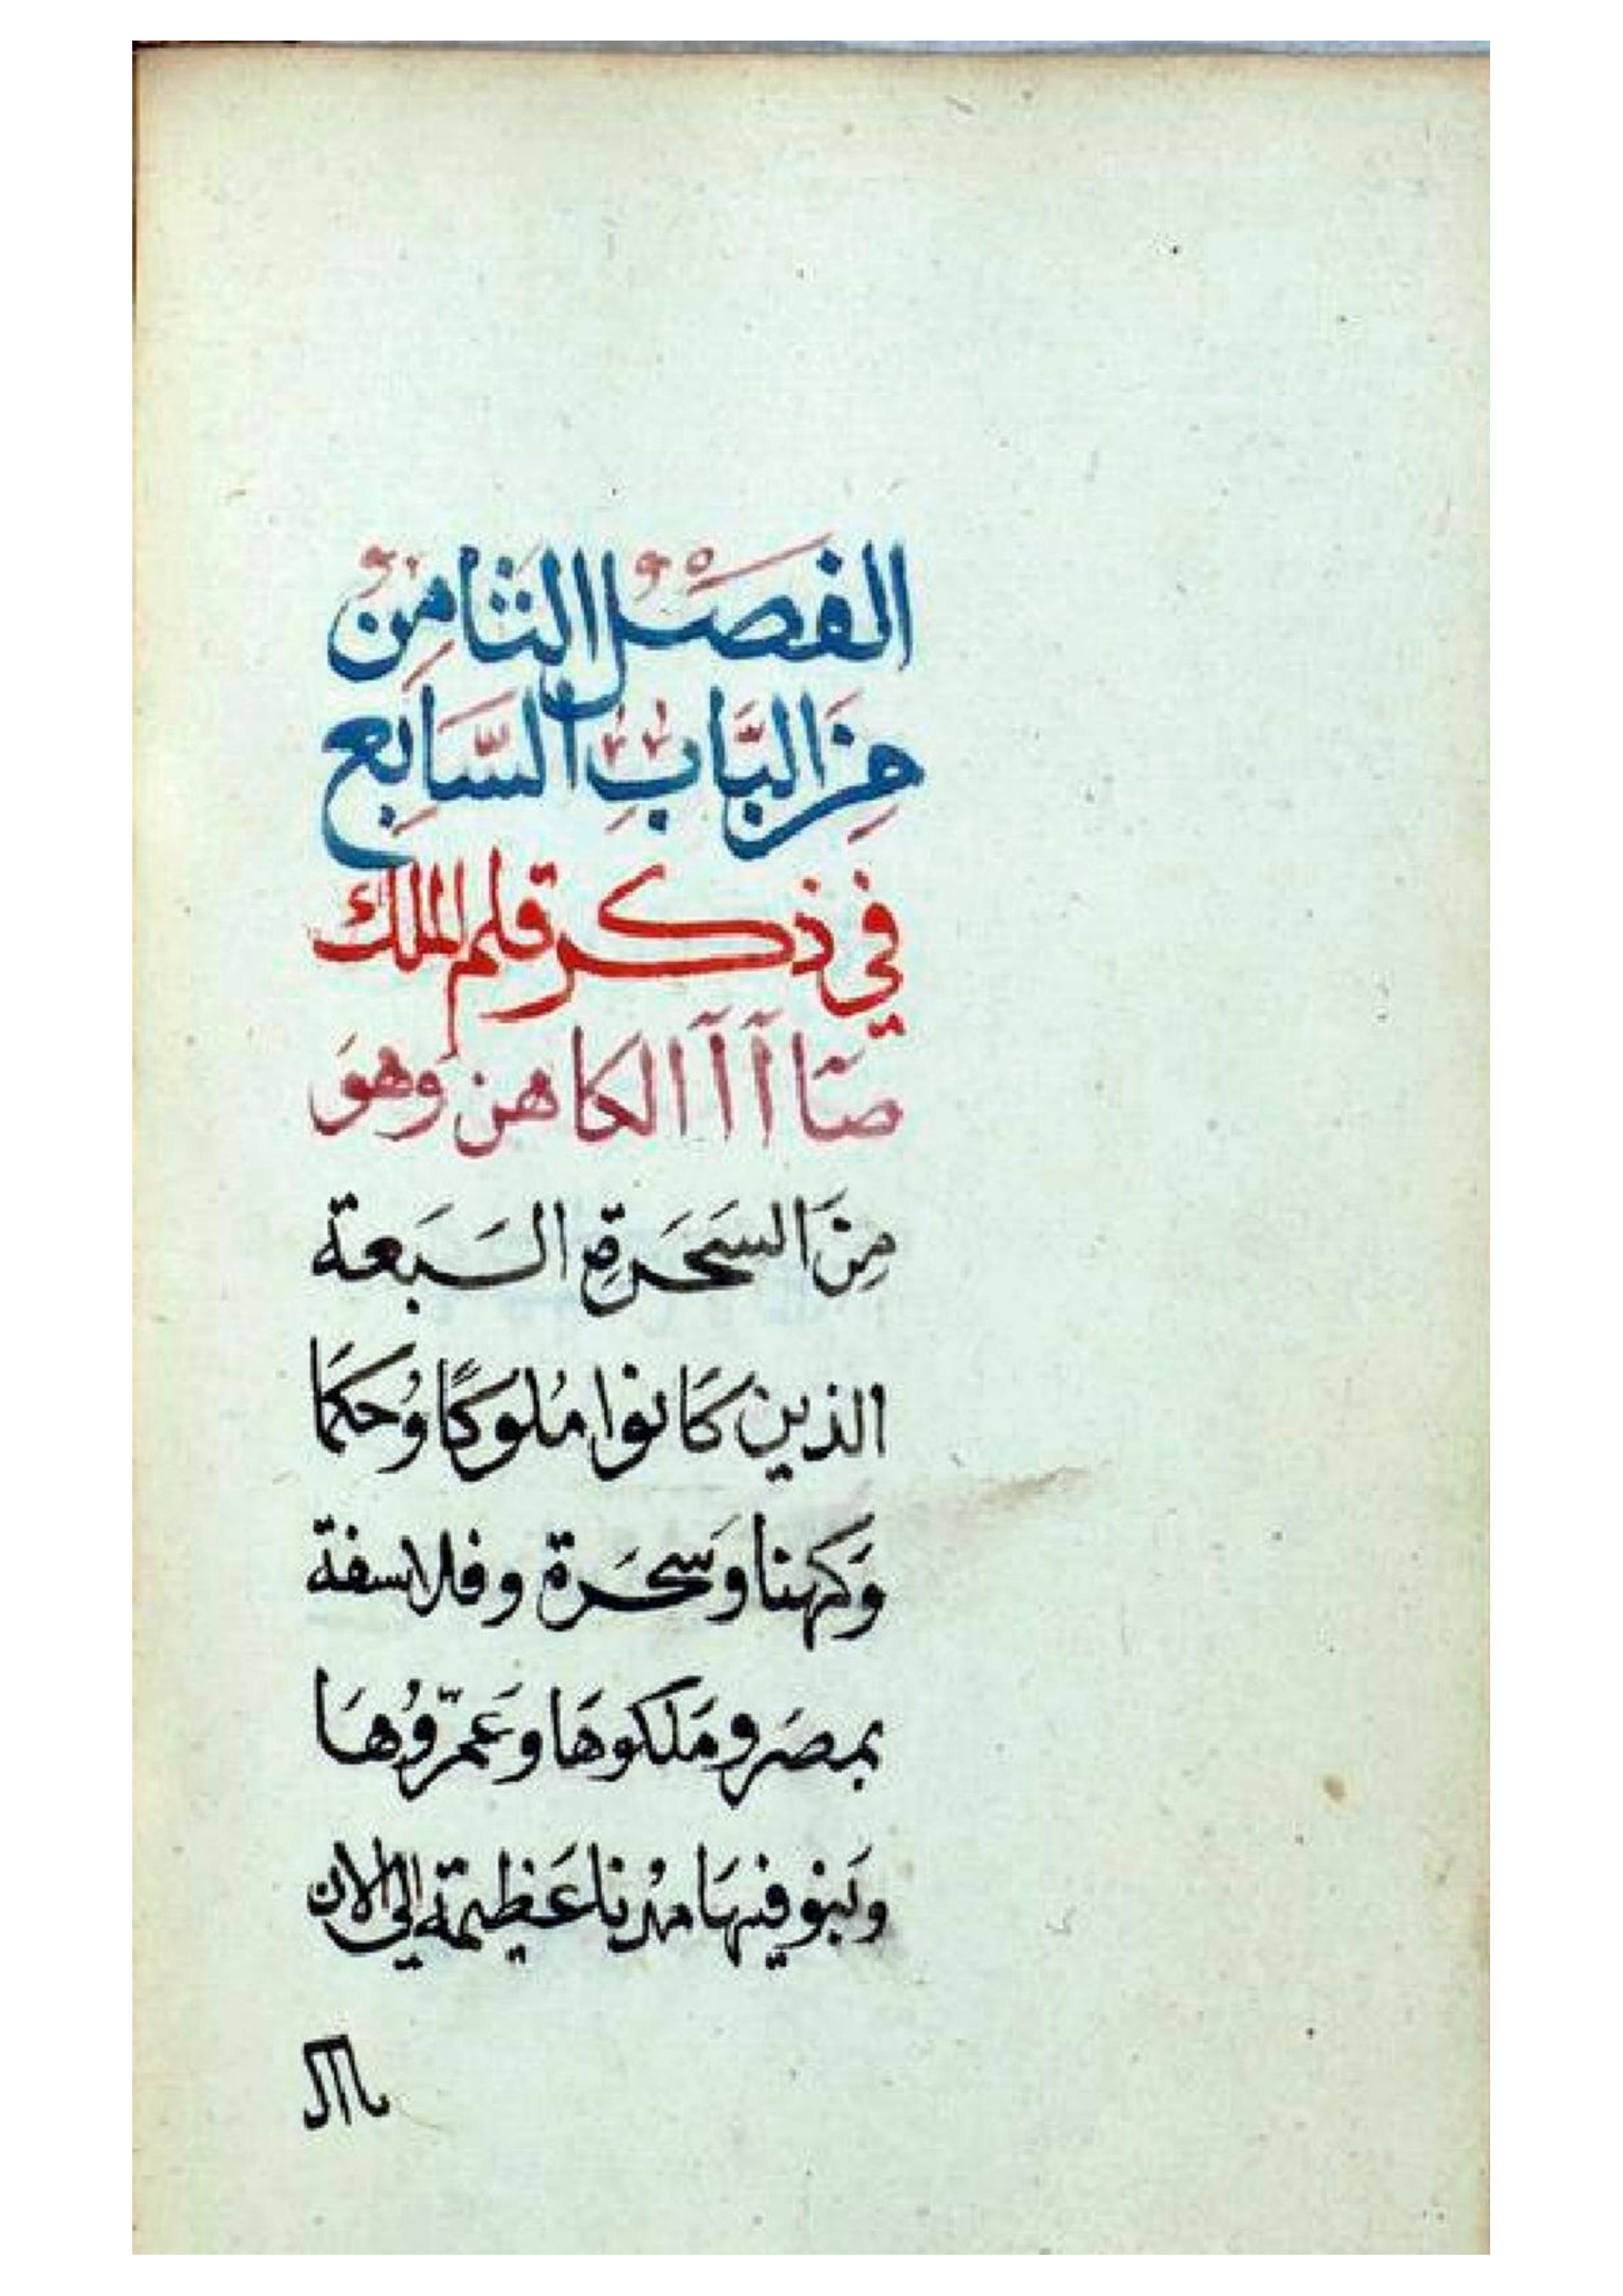 الفصل الثامن
من البَابِ السَّابِع
في ذكر قلم الملك
صاا آ آ الكاهن وَهوَ
مِنَ السَحَرَةِ السَبَعة
الذين كَانوا مُلوكًا وُحكمَا
وَكهنا وسَحَرة وفلاسفة
بمصَر ومَلكوهَا وعَمّروُهَا
وبَنو فيهَا مُدنا عَظيمة الي الان